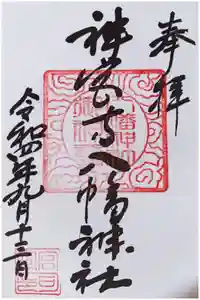 奉拝
神宮寺八幡神社
令和四年九月十三日